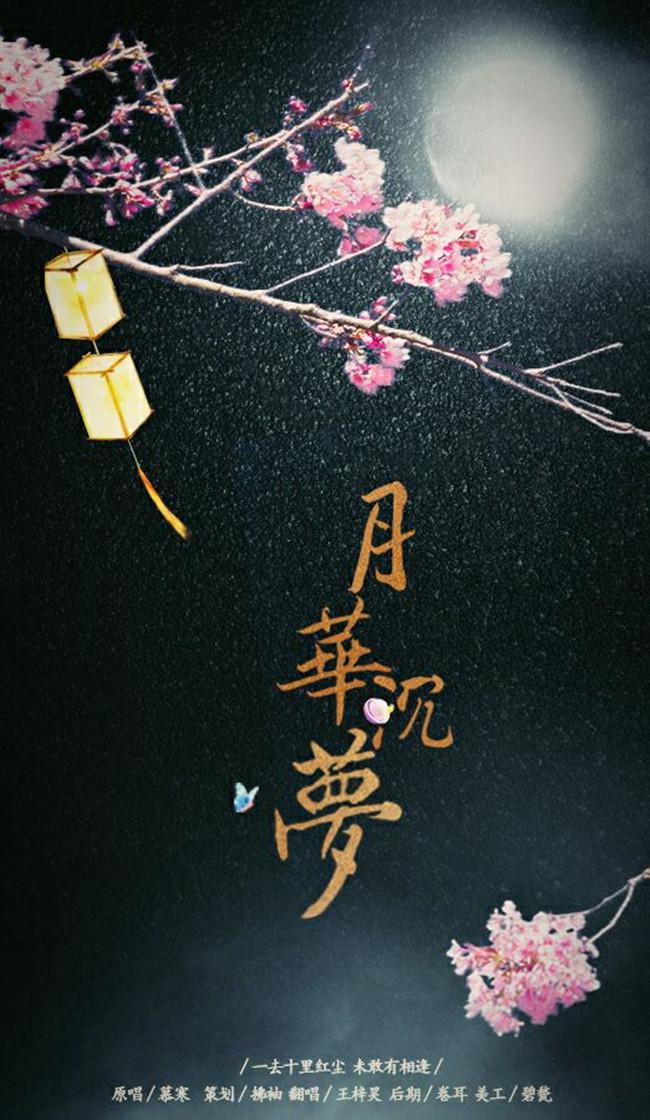 月華沉夢
/一去十里红尘 未敢有相逢/
原唱/慕寒 策划/拂袖 翻唱/王梓旻 后期/卷耳 美工/碧甃